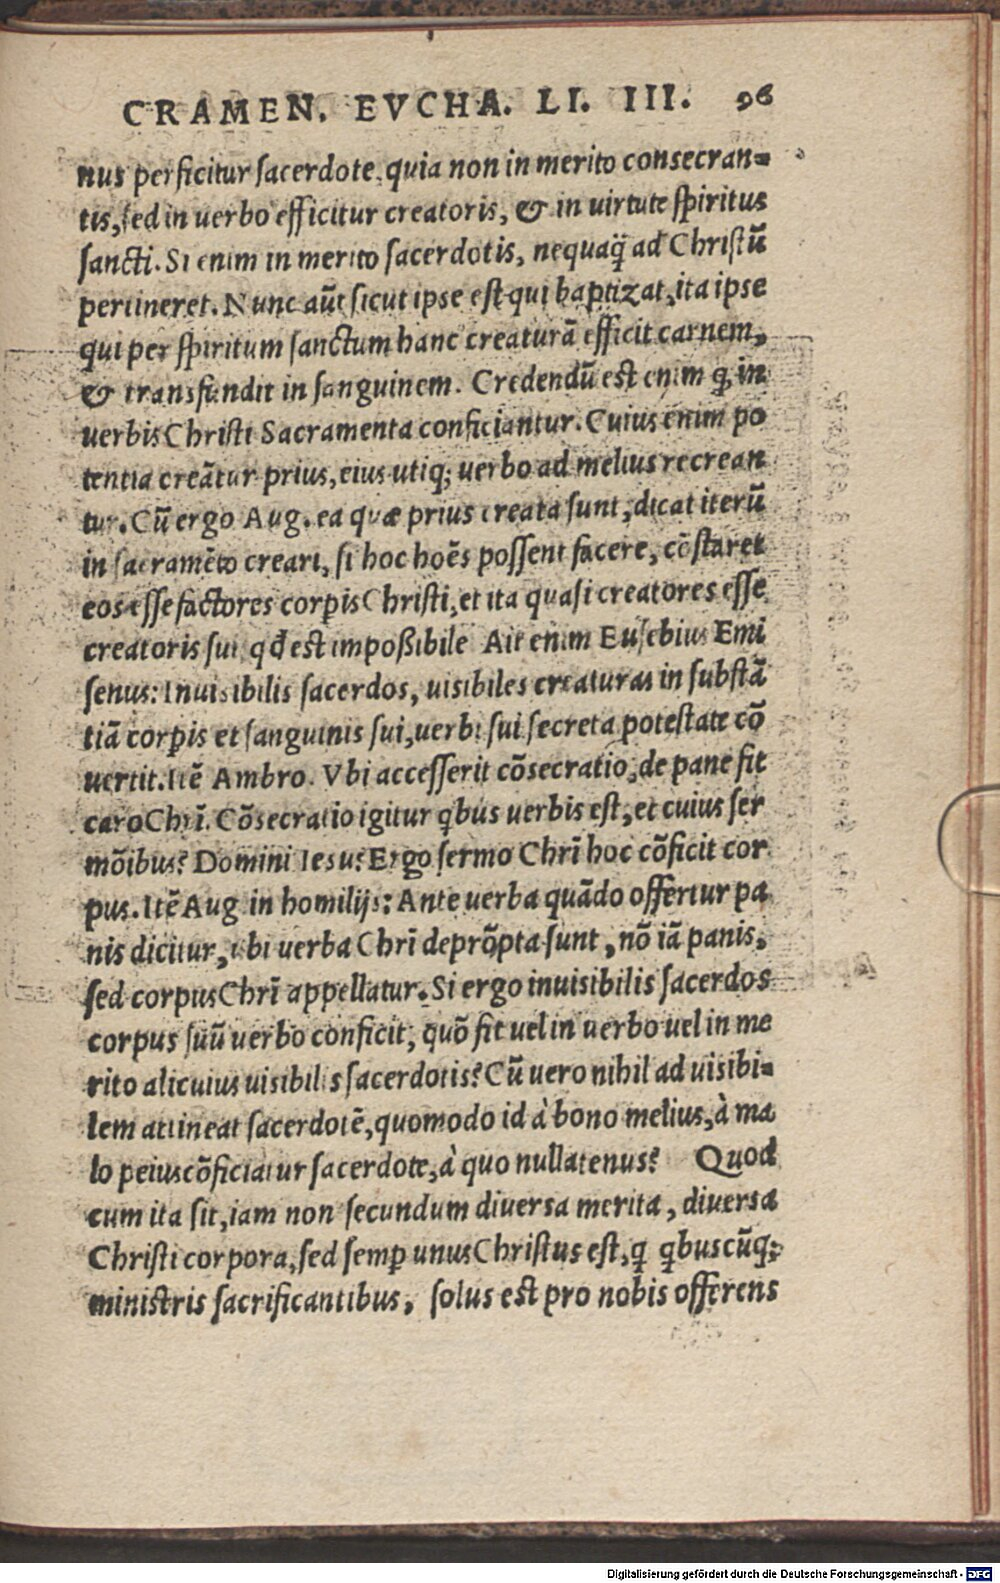 CRAMEN. EVCHA. LI. III. 96
nus perficitur sacerdote, quia non in merito consecran=
tis, sed in uerbo efficitur creatoris, & in uirtute spiritus
sancti. Si enim in merito sacerdotis, nequaq̃ ad Christū
pertineret. Nunc aūt sicut ipse est qui baptizat, ita ipse
qui per spiritum sanctum hanc creaturā efficit carnem,
& transfundit in sanguinem. Credendū est enim ꝙ in
uerbis Christi Sacramenta conficiantur. Cuius enim po
tentia creātur prius, eius utiq; uerbo ad melius recrean
tur. Cū ergo Aug. ea quæ prius creata sunt, dicat iterū
in sacramēto creari, si hoc hoēs possent facere, cōstaret
eos esse factores corpis Christi, et ita quasi creatores esse
creatoris sui, qđ est impoßibile Ait enim Eusebius Emi
senus: Inuisibilis sacerdos, uisibiles creaturas in substā
tiā corpis et sanguinis sui, uerbi sui secreta potestate cō
uertit. Itē Ambro. Vbi accesserit cōsecratio, de pane fit
caro Chrī. Cōsecratio igitur qbus uerbis est, et cuius ser
mōibus? Domini Iesu? Ergo sermo Chrī hoc cōficit cor
pus. Itē Aug in homilijs: Ante uerba quādo offertur pa
nis dicitur, ubi uerba Chrī deprōpta sunt, nō iā panis,
sed corpus Chrī appellatur. Si ergo inuisibilis sacerdos
corpus suū uerbo conficit, quō fit uel in uerbo uel in me
rito alicuius uisibilis sacerdotis? Cū uero nihil ad uisibi=
lem attineat sacerdotē, quomodo id à bono melius, à ma
lo peius cōficiatur sacerdote, à quo nullatenus? Quod
cum ita sit, iam non secundum diuersa merita, diuersa
Christi corpora, sed semp unus Christus est, q qbuscūq;
ministris sacrificantibus, solus est pro nobis offerens
Digitalisierung gefördert durch die Deutsche Forschungsgemeinschaft - DFG